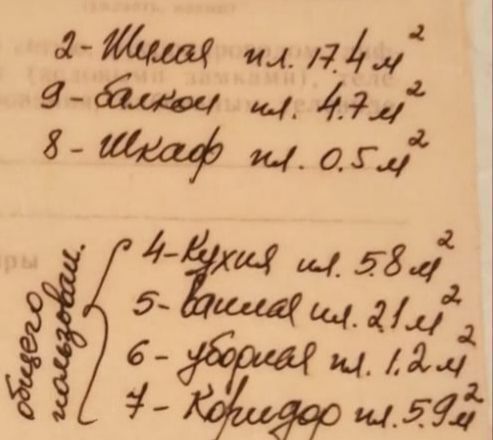 2 - Жилая пл. 17.4 м²
9 - балкон пл. 4.7 м²
8 - Шкаф пл. 0.5 м²
общего
пользован.
4 - Кухня пл. 5.8 м²
5 - ванная пл. 2.1 м²
6 - уборная пл. 1.2 м²
7 - Коридор пл. 5.9 м²